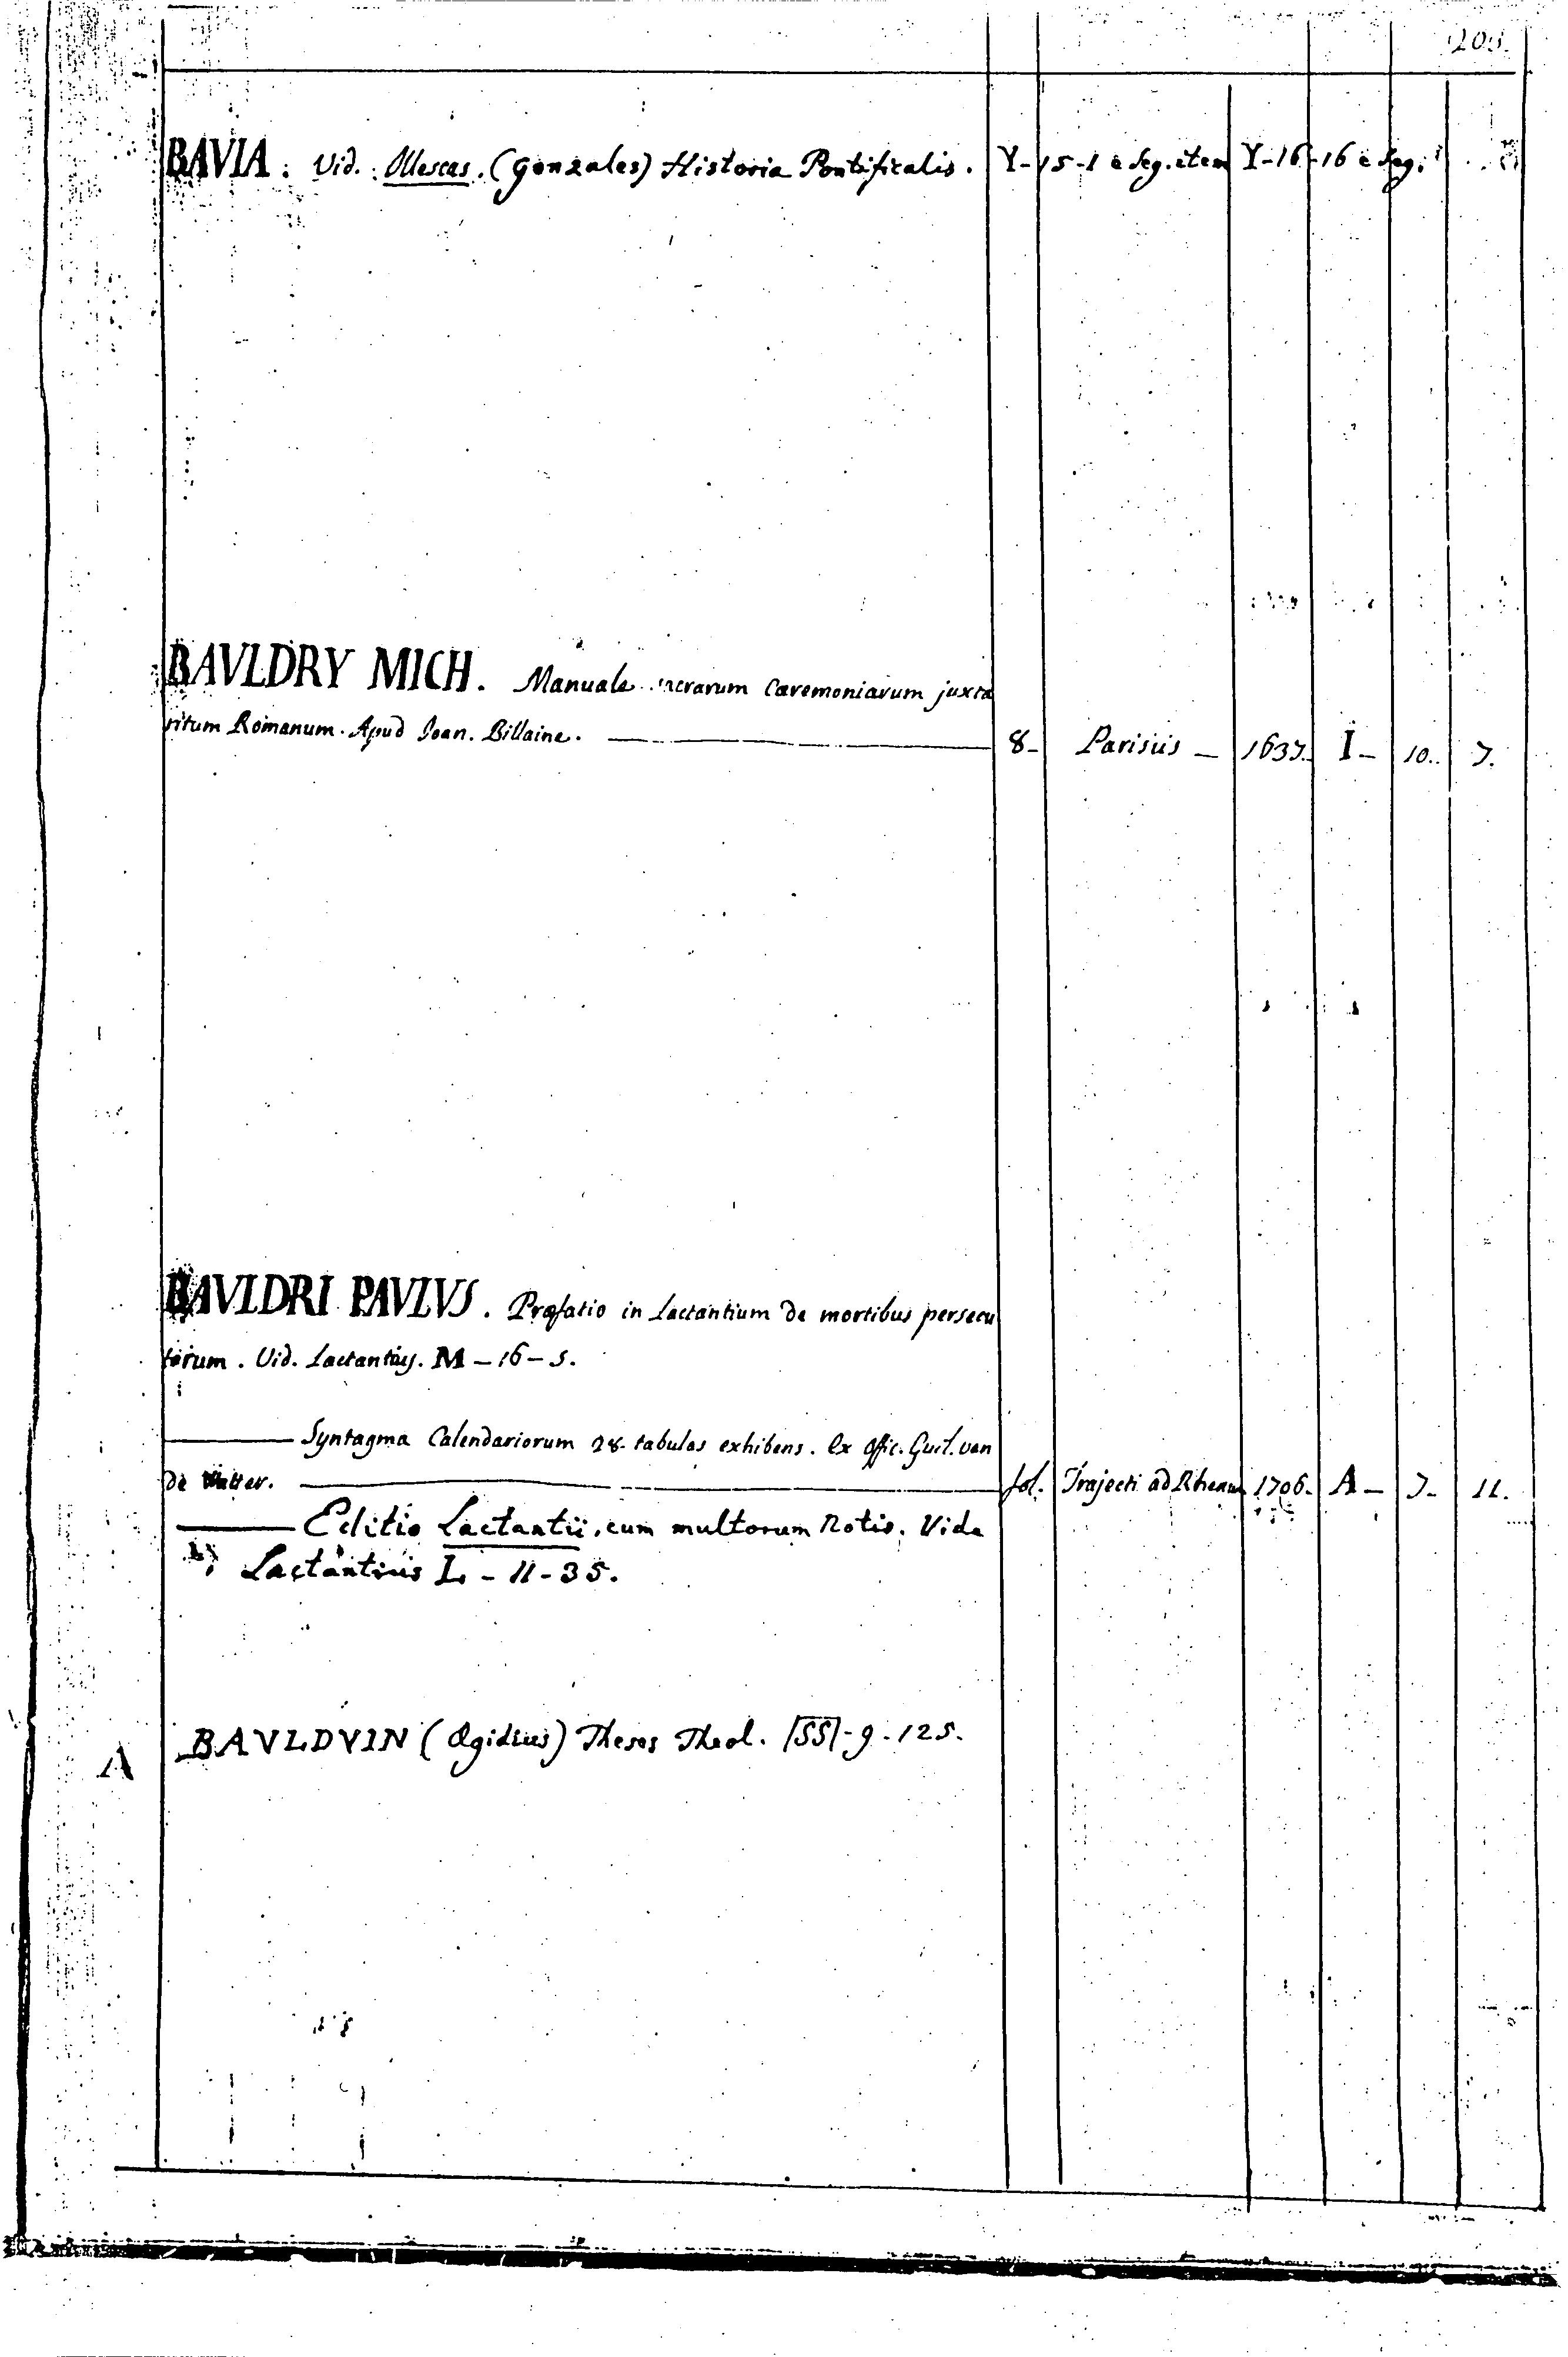 205.
BAVIA : Vid. : Illescas. (Gonzales) Historia Pontificalis. Y-15-1 e seq. item Y-16-16 e seq.
BAVLDRY MICH. Manuale sacrarum Caremoniarum juxta
ritum Romanum. Apud Ioan. Billaine. 8- Parisiis - 1637. I- 10. 7.
BAVLDRI PAVLVS. Præfatio in Lactantium de mortibus persecu
torum. Vid. Lactantius. M-16-5.
Syntagma Calendariorum 28. tabulas exhibens. Ex offic. Guil. van
de Watter. fol. Trajecti ad Rhenum 1706. A- 7- 11.
Editio Lactantii, cum multorum Notis. Vide
Lactantius L-11-35.
A BAVLDVIN (Ægidius) Theses Theol. SS-9-125.